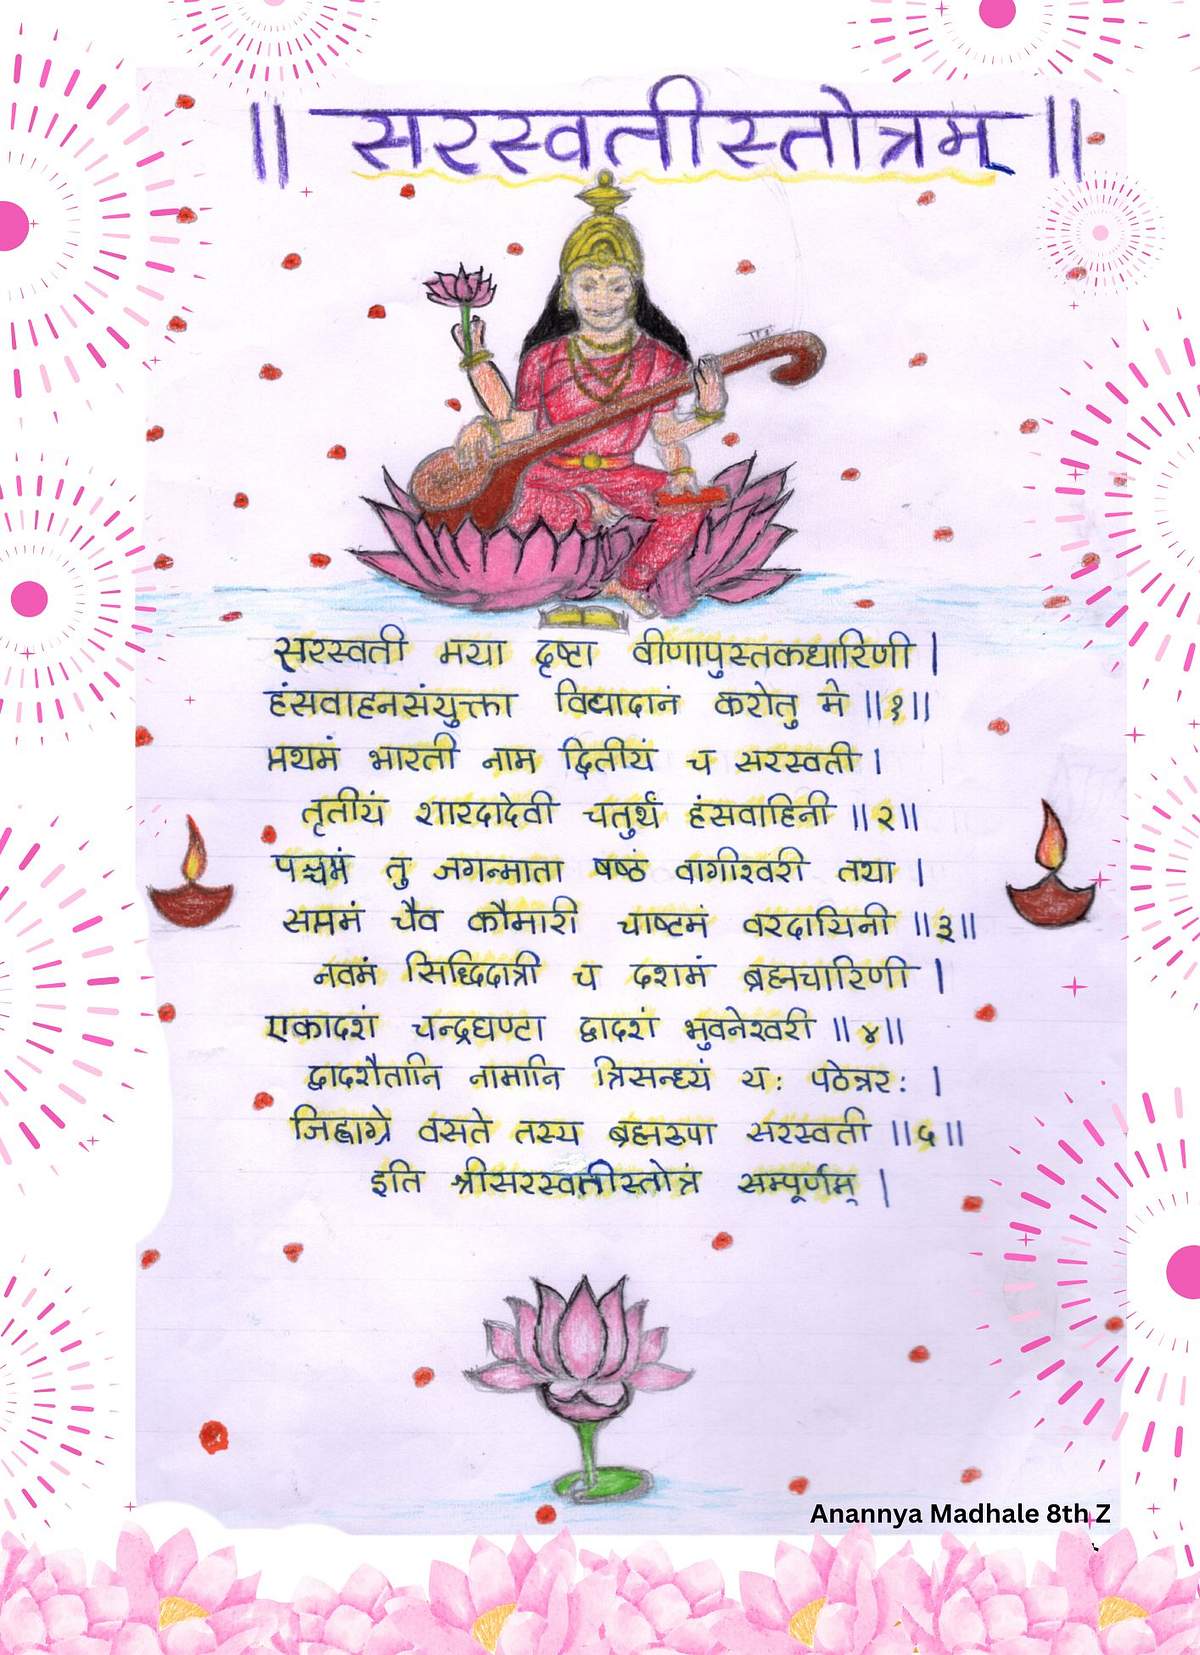 || सरस्वतीस्तोत्रम् ||
सरस्वती मया दृष्टा वीणापुस्तकधारिणी |
हंसवाहनसंयुक्ता विद्यादानं करोतु मे ||१||
प्रथमं भारती नाम द्वितीयं च सरस्वती |
तृतीयं शारदादेवी चतुर्थं हंसवाहिनी ||२||
पञ्चमं तु जगन्माता षष्ठं वागीश्वरी तथा |
सप्तमं चैव कौमारी चाष्टमं वरदायिनी ||३||
नवमं सिद्धिदात्री च दशमं ब्रह्मचारिणी |
एकादशं चन्द्रघण्टा द्वादशं भुवनेश्वरी ||४||
द्वादशैतानि नामानि त्रिसन्ध्यं यः पठेन्नरः |
जिह्वाग्रे वसते तस्य ब्रह्मरूपा सरस्वती ||५||
इति श्रीसरस्वतीस्तोत्रं सम्पूर्णम् |
Anannya Madhale 8th Z